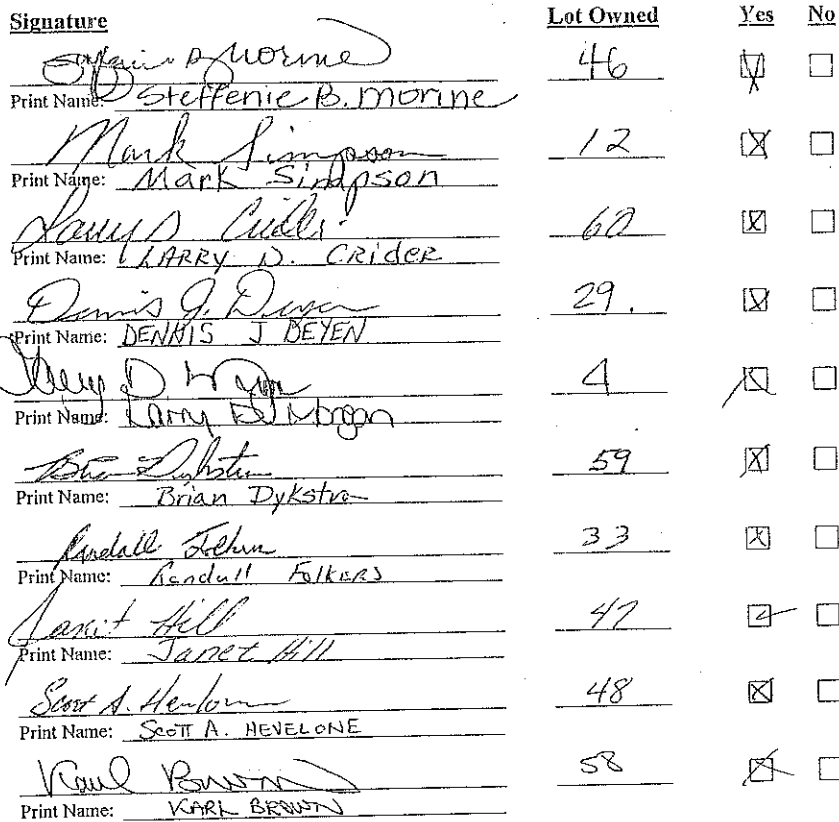 Signature Lot Owned Yes No
Morine 46
Print Name: Steffenie B. Morine
Mark Simpson 12
Print Name: Mark Simpson
Larry D Crider 60
Print Name: LARRY D. CRideR
Dennis J. Deyen 29.
Print Name: DENNIS J DEYEN
Larry D 4
Print Name: Larry D. Morgan
Brian Dykstra 59
Print Name: Brian Dykstra
Randall Folkers 33
Print Name: Randall FolkeRs
Janet Hill 47
Print Name: Janet Hill
Scott A. Hevelone 48
Print Name: SCOTT A. HEVELONE
Karl Brown 58
Print Name: KARL BROWN